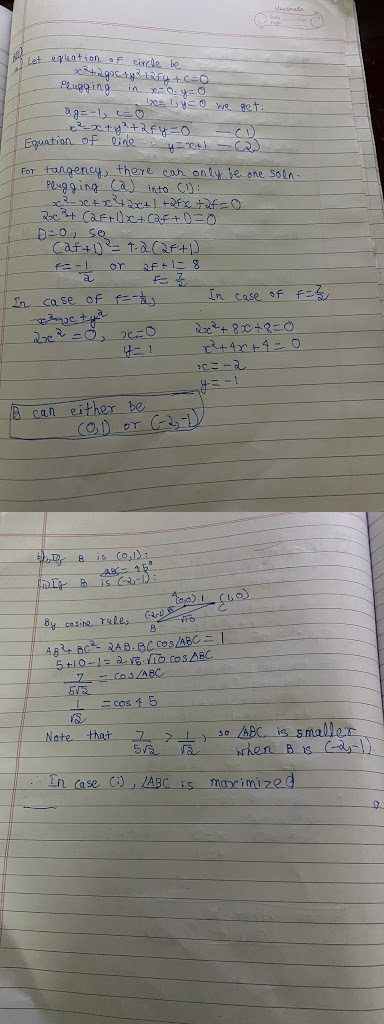 classmate
Date
Page
a. Let equation of circle be
x²+2gx+y²+2fy+c=0
Plugging in x=0, y=0
x=1, y=0 we get:
2g=-1, c=0
x²-x+y²+2fy=0 —(1)
Equation of line: y=x+1 —(2)
For tangency, there can only be one soln.
Plugging (2) into (1):
x²-x+x²+2x+1+2fx+2f=0
2x²+(2f+1)x+(2f+1)=0
D=0, so
(2f+1)²=4·2(2f+1)
f=-1/2 or 2f+1=8
f=7/2
In case of f=-1/2,
2x²=0, x=0
y=1
In case of f=7/2
2x²+8x+8=0
x²+4x+4=0
x=-2
y=-1
B can either be
(0,1) or (-2,-1)
b)(i) If B is (0,1):
∠ABC=45°
(ii) If B is (-2,-1):
A (0,0) 1 (1,0)
C
(-2,-1)
B
√10
By cosine rule,
AB²+BC²-2AB·BC cos∠ABC=1
5+10-1=2√5·√10 cos∠ABC
7/5√2 = cos∠ABC
1/√2 = cos 45
Note that 7/5√2 > 1/√2, so ∠ABC is smaller
when B is (-2,-1).
∴ In case (i), ∠ABC is maximized